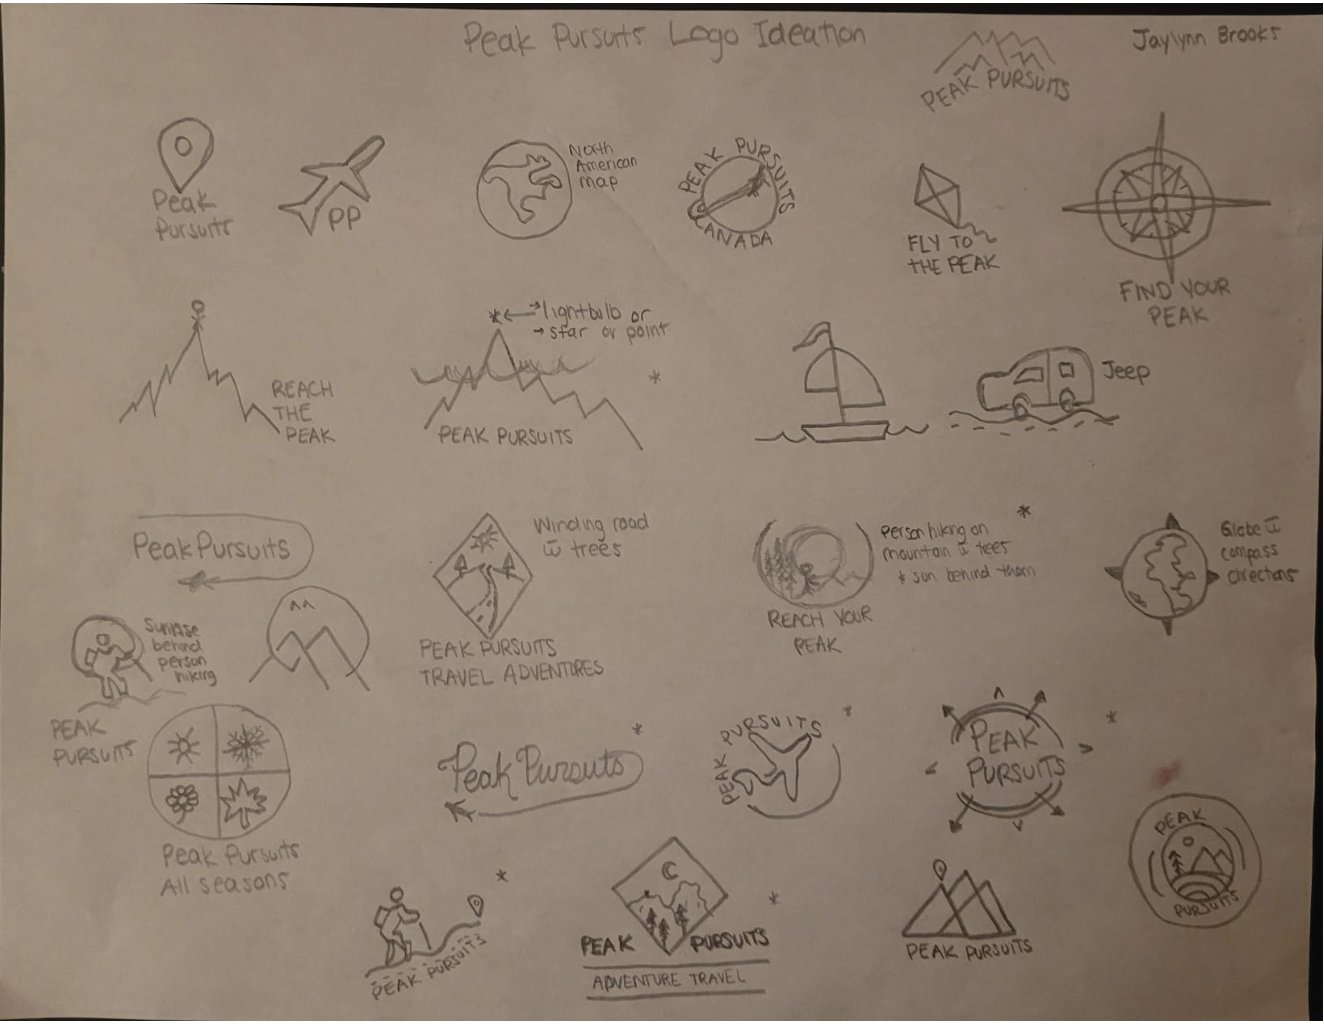 Peak Pursuits Logo Ideation
Jaylynn Brooks
PEAK PURSUITS
Peak
Pursuits
PP
North
American
map
PEAK PURSUITS
CANADA
FLY TO
THE PEAK
FIND YOUR
PEAK
REACH
THE
PEAK
* ←→ lightbulb or
→ star or point
*
PEAK PURSUITS
Jeep
Peak Pursuits
Winding road
w̄ trees
PEAK PURSUITS
TRAVEL ADVENTURES
*
Person hiking on
mountain w̄ trees
+ sun behind them
REACH YOUR
PEAK
Globe w̄
compass
directions
Sunrise
behind
person
hiking
PEAK
PURSUITS
Peak Pursuits
All seasons
*
Peak Pursuits
*
PEAK PURSUITS
*
PEAK
PURSUITS
PEAK
PURSUITS
*
PEAK PURSUITS
*
PEAK PURSUITS
ADVENTURE TRAVEL
PEAK PURSUITS